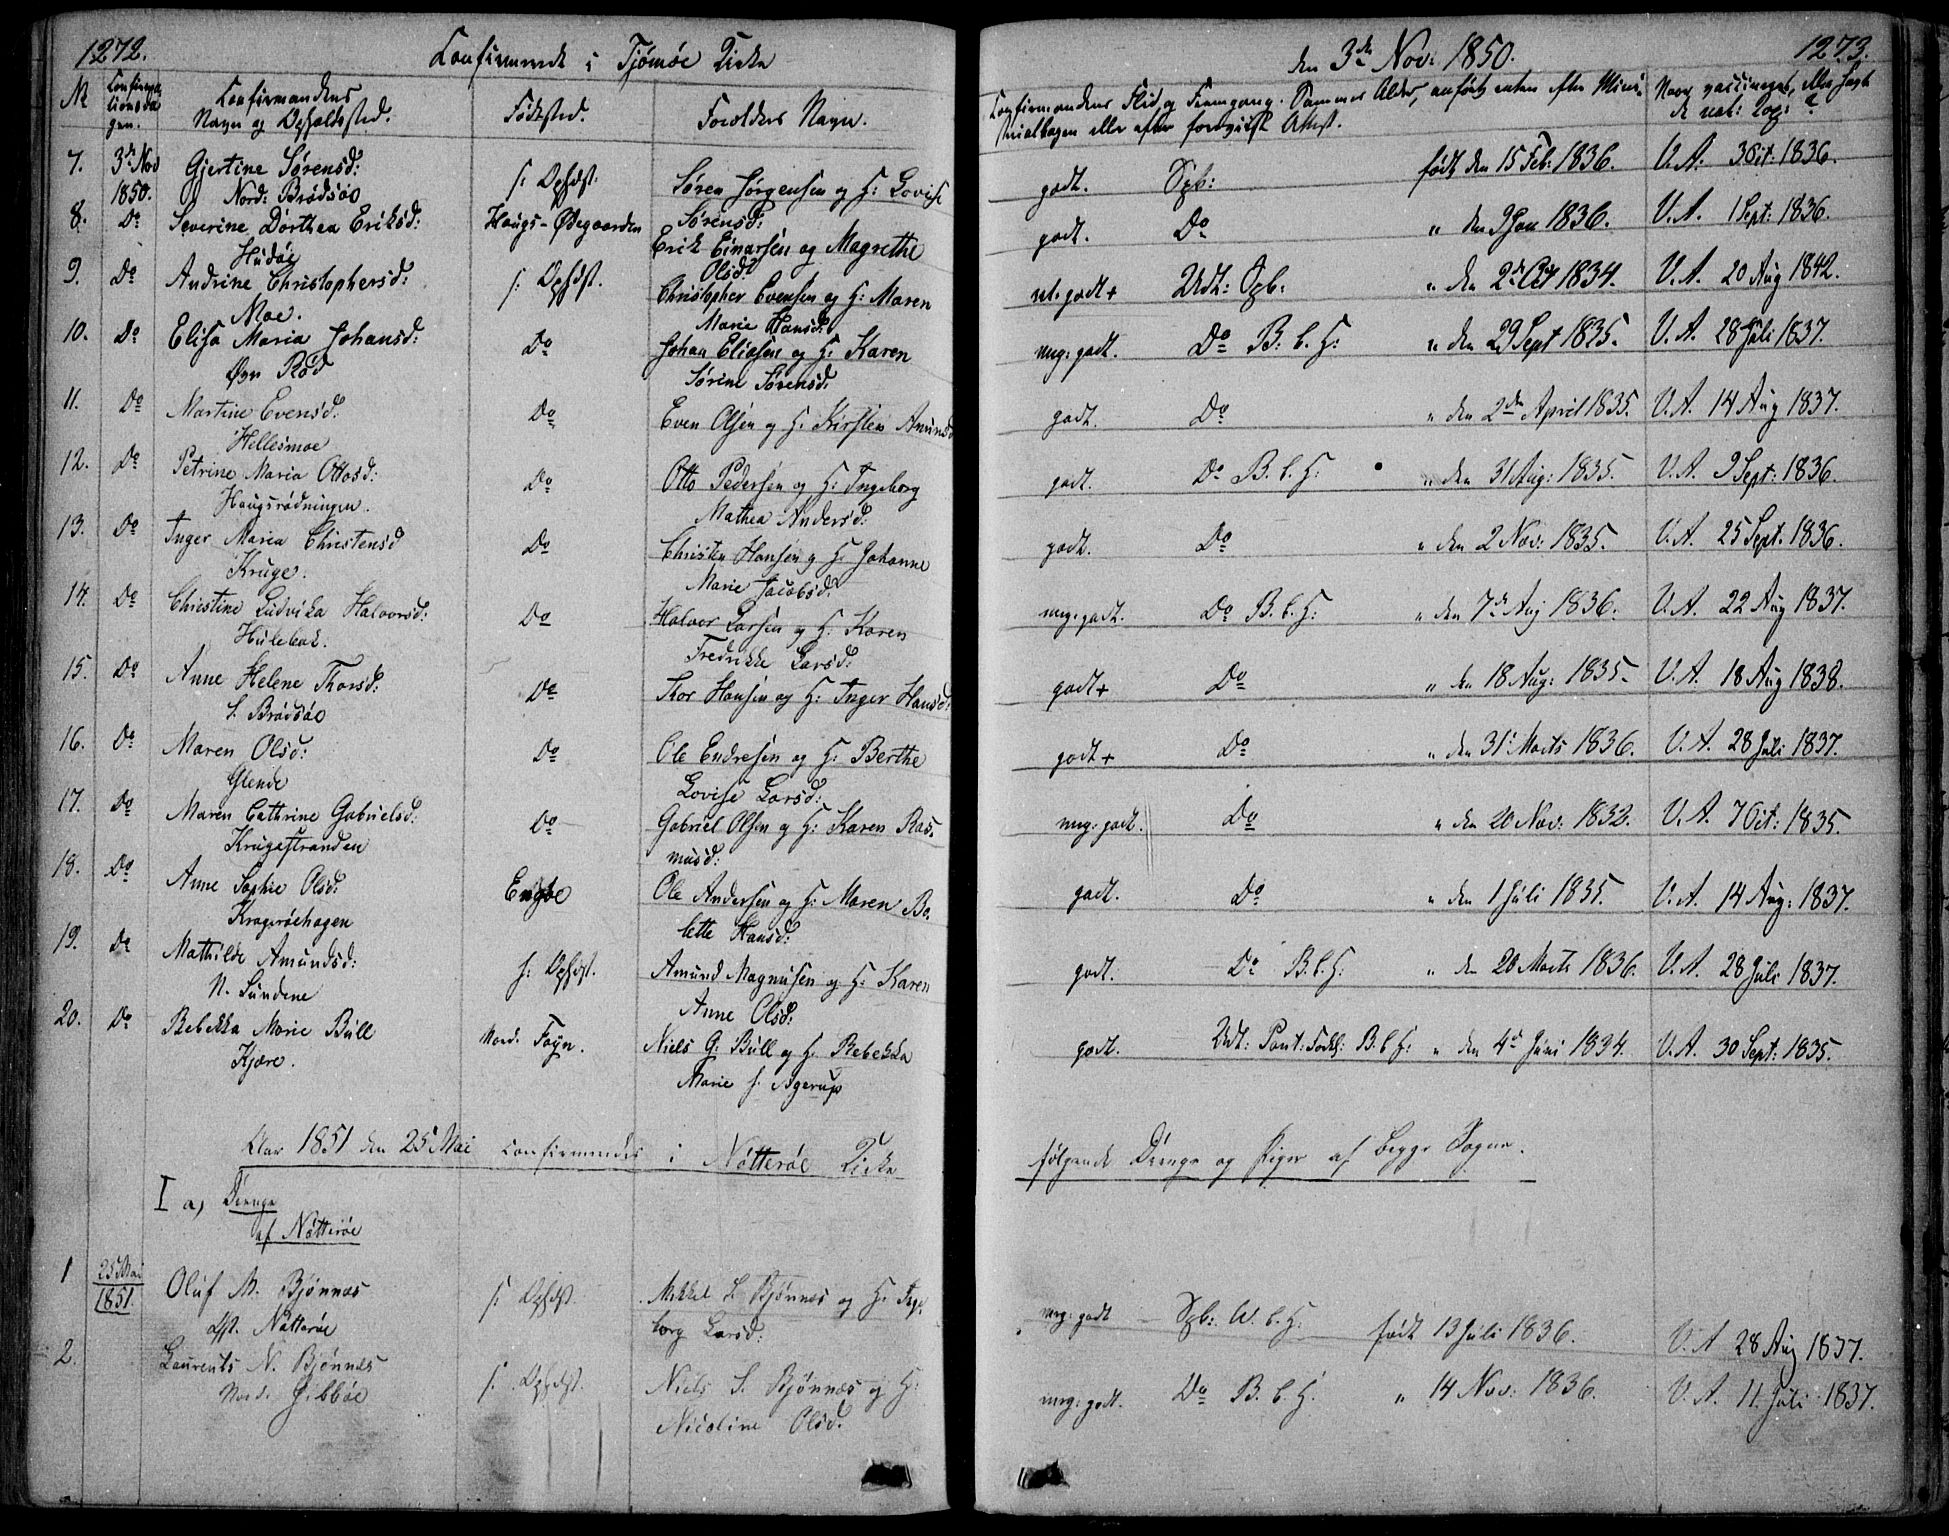 1272.
Confirmerede i Tjømøe Kirke
№
Confirma-
tionsda-
gen.
Confirmandens
Navn og Opholdsted.
Fødested.
Forældres Navn.
7. 3de Nov Gjertine Sørensd: s: Ophdst. Søren Jørgensen og H: Lovise
1850. Nord: Brødsøe Sørensd:
8. Do Severine Dorthea Eriksd: Haugs-Ødegaarden Erik Einarsen og Magrethe
Hudøe Olsd:
9. Do Andrine Christophersd: s: Ophdst. Christopher Evensen og H: Maren
Moe. Marie Hansd:
10. Do Elisa Maria Johansd: Do Johan Eliasen og H: Karen
Øvr Rød Sørine Sørensd:
11. Do Martine Evensd: Do Even Olsen og H: Kirsten Amunds
Hellesmoe
12. Do Petrine Maria Ottosd: Do Otto Pedersen og H: Ingeborg
Haugsrødningen. Mathea Andersd:
13. Do Inger Maria Christensd Do Christen Hansen og H: Johanne
Kruge. Marie Jacobsd:
14. Do Christine Ludvika Halvorsd: Do Halvor Larsen og H: Karen
Hulebak. Fredrikke Larsd:
15. Do Anne Helene Thorsd: Do Thor Hansen og H: Inger Hansd:
S. Brødsøe
16. Do Maren Olsd: Do Ole Endresen og H: Berthe
Glende Lovise Larsd:
17. Do Maren Cathrine Gabrielsd: Do Gabriel Olsen og H: Karen Ras-
Krugestranden musd:
18. Do Anne Sophie Olsd: Engøe Ole Andersen og H: Maren Bo-
Kragerøehagen lette Hansd:
19. Do Mathilde Amundsd: s: Ophdst. Amund Magnusen og H: Karen
N. Sundene Anne Olsd:
20. Do Rebekka Marie Bull Nord. Føyn. Niels G: Bull og H. Rebekka
Kjære. Marie f. Agerup
Aar 1851 den 25 Mai confirmeredes i Nøtterøe Kirke
I a) Drenge
af Nøtterøe
1 25 Mai Oluf M. Bjønnes s: Ophdst. Mikkel L. Bjønnes og H: Inge-
1851. Nøtterøe borg Larsd:
2. Laurents N. Bjønnes s: Ophdst. Niels S. Bjønnes og H:
Nord: Gibbøe Nicoline Olsd:
den 3de Nov: 1850. 1273.
Confirmandens Flid og Fremgang. Sammes Alder, anført enten efter Mini-
sterialbogen eller efter forevist Attest.
Naar vaccineret, eller havt
de nat: Cop: ?
godt. Sgb: født den 15 Feb: 1836. V.A. 3 Oct: 1836.
godt. Do " den 9 Jan 1836. V.A. 1 Sept: 1836.
godt+ Udt: Sgb: " den 2de Oct 1834. V.A. 20 Aug 1842.
meg: godt. Do B. b. H: " den 29 Sept 1835. V.A. 28 Juli 1837.
godt. Do " den 2den April 1835. V.A. 14 Aug 1837.
godt. Do B. b. H: " den 31 Aug: 1835. V.A. 9 Sept: 1836.
godt. Do " den 2 Nov: 1835. V.A. 25 Sept: 1836.
meg: godt. Do B. b. H: " den 7de Aug 1836. V.A. 22 Aug 1837.
godt+ Do " den 18 Aug: 1835. V.A. 18 Aug 1838.
godt+ Do " den 31: Marts 1836. V.A. 28 Juli 1837.
meg: godt. Do " den 20 Nov: 1832. V.A. 7 Oct: 1835.
godt. Do " den 1 Juli 1835. V.A. 14 Aug: 1837.
godt. Do B. b. H: " den 20 Marts 1836. V.A. 28 Juli 1837.
godt. Udt: Pont: Forkl: B. b H: " den 4de Juni 1834. V.A. 30 Sept: 1835.
følgende Drenge og Piger af begge Sogne.
meg: godt Sgb: W. b. H: født 13 Juli 1836. V.A 28 Aug 1837.
meg: godt. Do B. b. H: " 14 Nov: 1836. V.A. 11. Juli 1837.